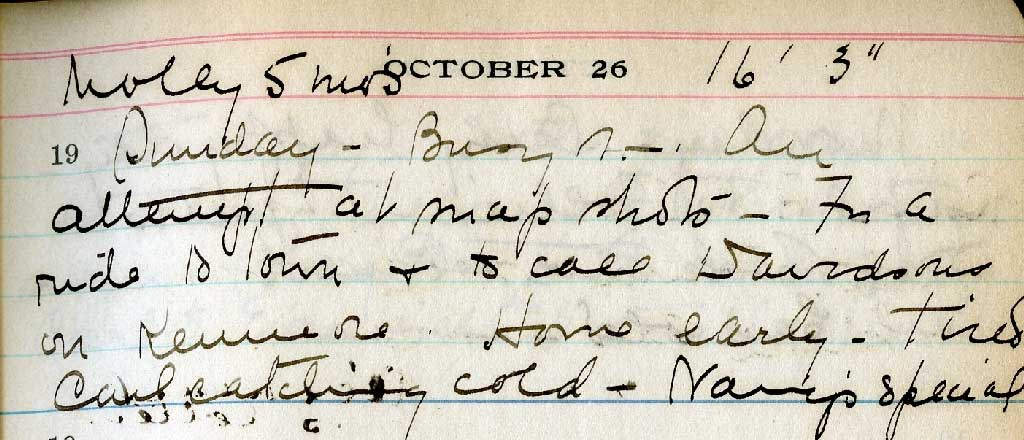 Molly 5 mo's OCTOBER 26 16' 3"
19 Sunday - Busy An
attempt at snap shots - For a
ride to Town + to call Davidsons
on Kenmore. Home early - Tired
Carl catching cold - special